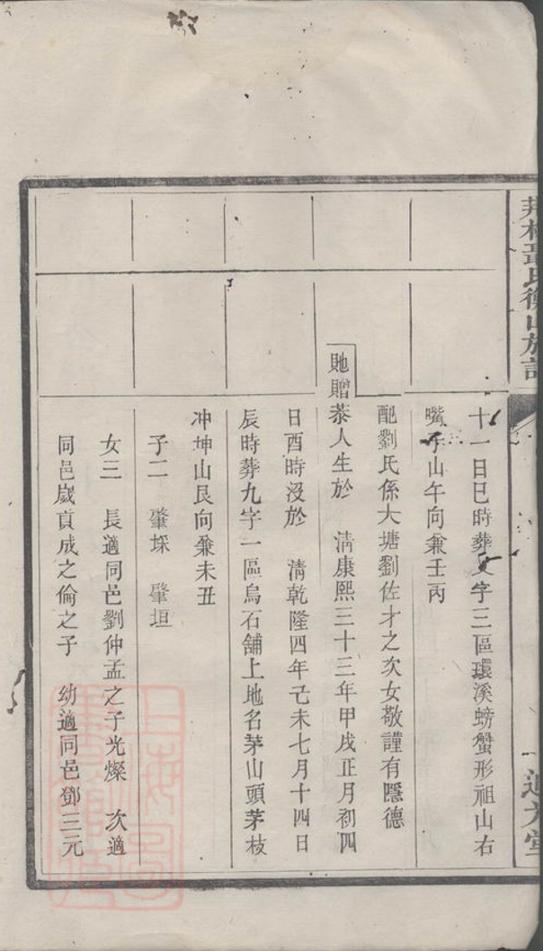 十一日巳時葬文字三區環溪螃蟹形祖山右
嘴子山午向兼壬丙
配劉氏係大塘劉佐才之次女敬謹有隱德
貤贈恭人生於 清康熙三十三年甲戌正月初四
日酉時沒於 清乾隆四年己未七月十四日
辰時葬九字一區烏石舖上地名茅山頭茅枝
冲坤山艮向兼未丑
子二 肇埰 肇垣
女三 長適同邑劉仲孟之子光燦 次適
同邑歲貢成之倫之子 幼適同邑鄧三元